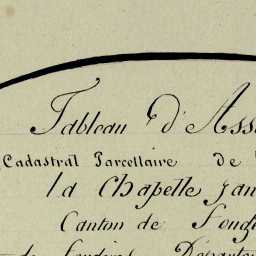 Tableau d'Ass
Cadastral Parcellaire de
la Chapelle Jan
Canton de Foug
de Fougères Départe